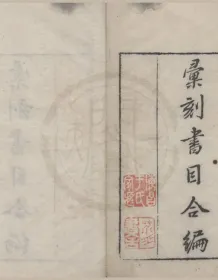 彙刻書目合編